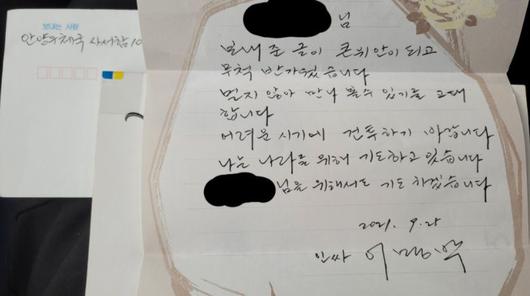 보내는 사람
안양우체국 사서함 10
님
보내 준 글이 큰 위안이 되고
무척 반가웠습니다
멀지 않아 만나 볼 수 있기를 고대
합니다
어려운 시기에 건투하기 바랍니다
나는 나라를 위해 기도하고 있습니다
님을 위해서도 기도 하겠습니다
2021. 9. 25
이명박